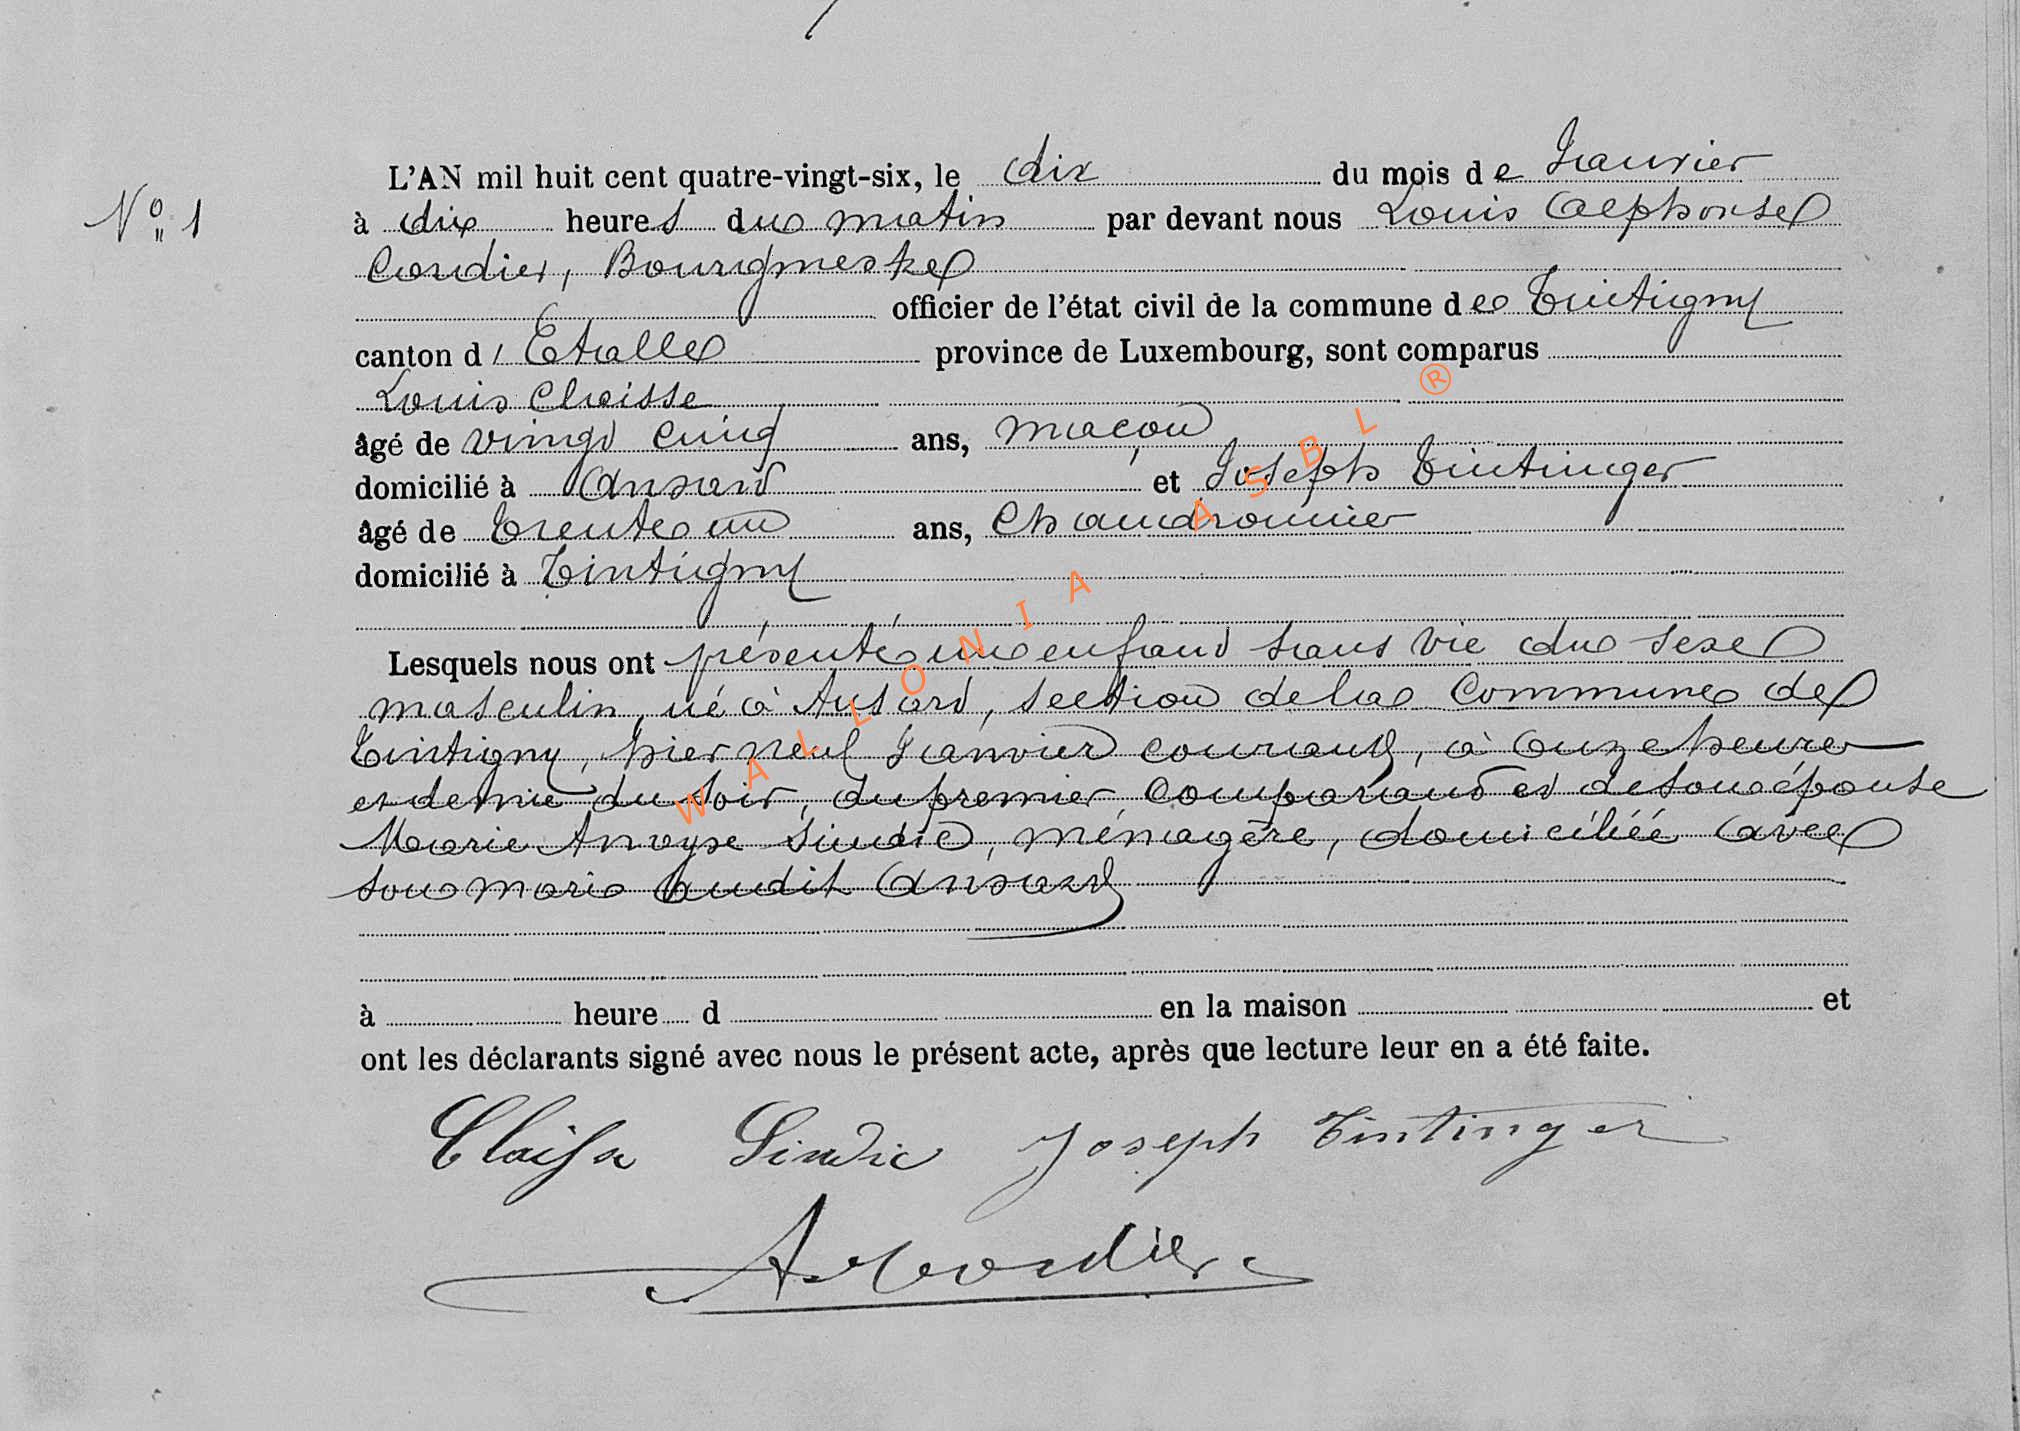 L'AN mil huit cent quatre-vingt-six, le dix du mois de Janvier
N° 1
à dix heures du matin par devant nous Louis Alphonse
Cordier, Bourgmestre
officier de l'état civil de la commune de Tintigny
canton d'Etalle province de Luxembourg, sont comparus
Louis Claisse
âgé de vingt cinq ans, maçon
domicilié à Ansart et Joseph Tintinger
âgé de trente un ans, Chaudronnier
domicilié à Tintigny
Lesquels nous ont présenté un enfant sans vie du sexe
masculin, né à Ansart, section de la Commune de
Tintigny, hier neuf Janvier courant, à onze heures
et demie du soir, du premier comparant et de son épouse
Marie Sindic, ménagère, domiciliée avec
son mari audit Ansart
à heure d en la maison et
ont les déclarants signé avec nous le présent acte, après que lecture leur en a été faite.
Claisse Sindic Joseph Tintinger
A Cordier
WALLONIA ASBL ®